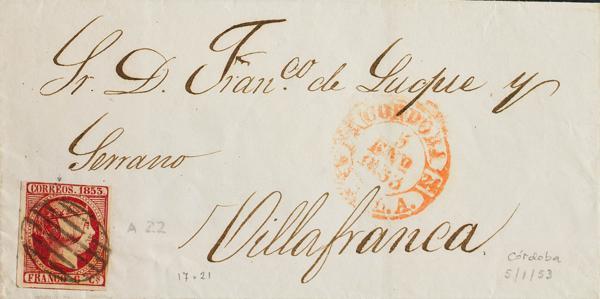 Sr. D. Franco. de Luque y
Serrano
CORDOBA
5
ENO
1853
CORREOS. 1853.
FRANCO 6 CS
A 22
Villafranca.
17.21
Córdoba
5/1/53